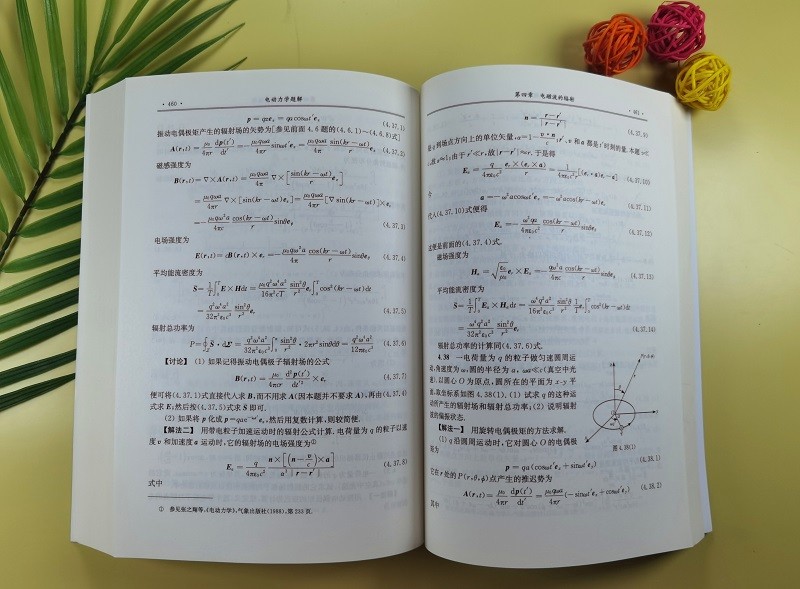 · 460 ·
电动力学题解
p = qze_z = qa cosωt′ e_z (4.37.1)
振动电偶极矩产生的辐射场的矢势为[参见前面4.6题的(4.6.1)~(4.6.8)式]
A(r,t) = μ₀/4πr dp(t′)/dt′ = -μ₀qωa/4πr sinωt′ e_z = μ₀qωa/4π sin(kr-ωt)/r e_z (4.37.2)
磁感强度为
B(r,t) = ∇×A(r,t) = μ₀qωa/4π ∇×[sin(kr-ωt)/r e_z]
= μ₀qωa/4πr ∇×[sin(kr-ωt)e_z] = μ₀qωa/4πr [∇sin(kr-ωt)]×e_z
= -μ₀qω²a/4πc cos(kr-ωt)/r sinθe_φ (4.37.3)
电场强度为
E(r,t) = cB(r,t)×e_r = -μ₀qω²a/4π cos(kr-ωt)/r sinθe_θ (4.37.4)
平均能流密度为
S̄ = 1/T ∫₀ᵀ E×H dt = μ₀q²ω⁴a²/16π²cT sin²θ/r² e_r ∫₀ᵀ cos²(kr-ωt)dt
= q²ω⁴a²/32π²ε₀c³ sin²θ/r² e_r (4.37.5)
辐射总功率为
P = ∮_S S̄·dΣ = q²ω⁴a²/32π²ε₀c³ ∫₀^π sin²θ/r² · 2πr² sinθdθ = q²ω⁴a²/12πε₀c³ (4.37.6)
【讨论】 (1) 如果记得振动电偶极子辐射场的公式
B(r,t) = μ₀/4πrc d²p(t′)/dt′² × e_r (4.37.7)
便可将(4.37.1)式直接代人求B,而不用求A(因本题并不要求A),再由(4.37.4)
式求E,然后按(4.37.5)式求S̄即可.
(2) 如果将p化成p=qae^{-iωt′}e_z,然后用复数计算,则较简便.
【解法二】 用带电粒子加速运动时的辐射公式计算. 电荷量为q的粒子以速
度v和加速度a运动时,它的辐射场的电场强度为①
E_a = q/4πε₀c² n×[(n-v/c)×a]/α³|r-r′| (4.37.8)
式中
① 参见张之翔等,《电动力学》,气象出版社(1988),第233页.
第四章 电磁波的辐射
· 461 ·
n = r-r′/|r-r′| (4.37.9)
是q到场点方向上的单位矢量,α=1-v·n/c; r′、v和a都是t′时刻的量.
α≈1;由于r′≪r,故|r-r′|≈r. 于是得
E_a = q/4πε₀c² e_r×(e_r×a)/r = 1/4πε₀c²r [(e_r·a)e_r-a] (4.37.10)
今
a = -ω²a cosωt′ e_z = -ω²a cos(kr-ωt)e_z (4.37.11)
代人(4.37.10)式便得
E_a = -ω²qa/4πε₀c² cos(kr-ωt)/r sinθe_θ (4.37.12)
这便是前面的(4.37.4)式.
磁场强度为
H_a = √(ε₀/μ₀) e_r×E_a = -qω²a/4πc cos(kr-ωt)/r sinθe_φ (4.37.13)
平均能流密度为
S̄ = 1/T ∫₀ᵀ E_a×H_a dt = ω⁴q²a²/16π²ε₀c³ sin²θ/r² 1/T e_r ∫₀ᵀ cos²(kr-ωt)dt
= ω⁴q²a²/32π²ε₀c³ sin²θ/r² e_r (4.37.14)
辐射总功率的计算同(4.37.6)式.
4.38 一电荷量为q的粒子做匀速圆周运
动,角速度为ω,圆的半径为a, ωa≪c(真空中光
速).以圆心O为原点,圆所在的平面为x-y平
面,取坐标系如图4.38(1).(1) 试求q的这种运
动所产生的辐射场和辐射总功率;(2) 说明辐射
波的偏振状态.
【解法一】 用旋转电偶极矩的方法求解.
(1) q沿圆周运动时,它对圆心O的电偶极
矩为
图4.38(1)
p = qa(cosωt′e_x + sinωt′e_y) (4.38.1)
它在r处的P(r,θ,φ)点产生的推迟势为
A(r,t) = μ₀/4πr dp(t′)/dt′ = μ₀qωa/4πr (-sinωt′e_x + cosωt′e_y) (4.38.2)
其中